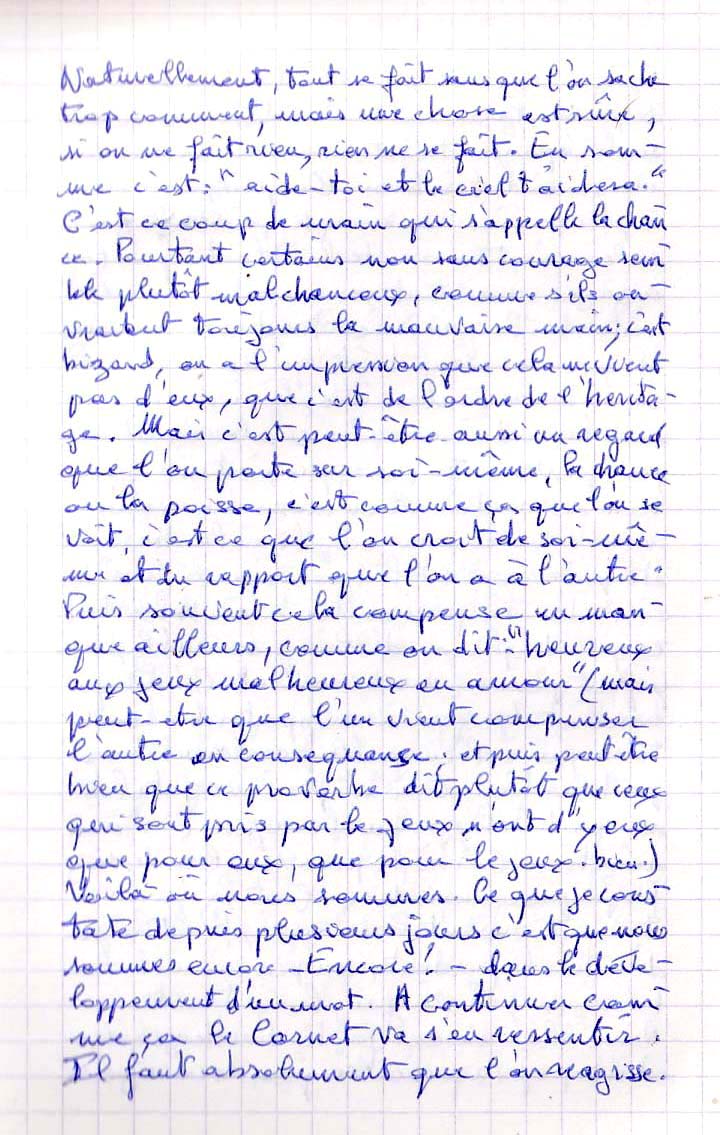 Naturellement, tout se fait sans que l'on sache
trop comment, mais une chose est sûre,
si on ne fait rien, rien ne se fait. En som-
me c'est : "aide-toi et le ciel t'aidera."
C'est ce coup de main qui s'appelle la chan
ce. Pourtant certains non sans courage sem
ble plutôt malchanceux, comme s'ils ou-
vraient toujours la mauvaise main; c'est
bizard, on a l'impression que cela ne vient
pas d'eux, que c'est de l'ordre de l'hérita-
ge. Mais c'est peut-être aussi un regard
que l'on porte sur soi-même, la chance
ou la poisse, c'est comme ça que l'on se
voit, c'est ce que l'on croit de soi-mê-
me et du rapport que l'on a à l'autre.
Puis souvent cela compense un man-
que ailleurs, comme on dit : "heureux
aux jeux malheureux en amour" (mais
peut-etre que l'un vient compenser
l'autre en consequance; et puis peut être
bien que ce proverbe dit plutôt que ceux
qui sont pris par le jeux n'ont d'yeux
que pour eux, que pour le jeux. bien.)
Voilà où nous sommes. Ce que je cons
tate depuis plusieurs jours c'est que nous
sommes encore - Encore! - dans le déve-
loppement d'un mot. A continuer com
me ça le Carnet va s'en ressentir.
Il faut absolument que l'on réagisse.